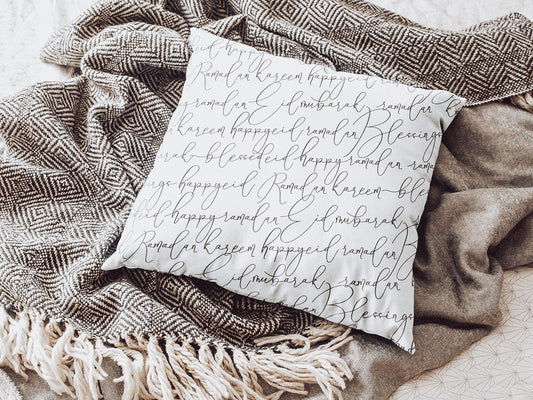 Ramadan kareem happy eid ramadan
y ramadan Eid mubarak - ramadan
kareem happy eid ramadan Blessings
barak - blessed eid happy ramadan
ngs happy eid Ramadan kareem - bles
eid - happy ramadan Eid mubarak
Ramadan kareem happy eid ramadan
Eid mubarak - ramadan
happy eid ramadan Blessings